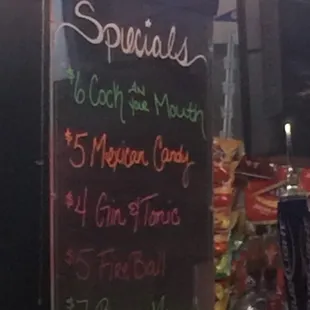 Specials
$6 Cock In Your Mouth
$5 Mexican Candy
$4 Gin & Tonic
$5 FireBall
$7